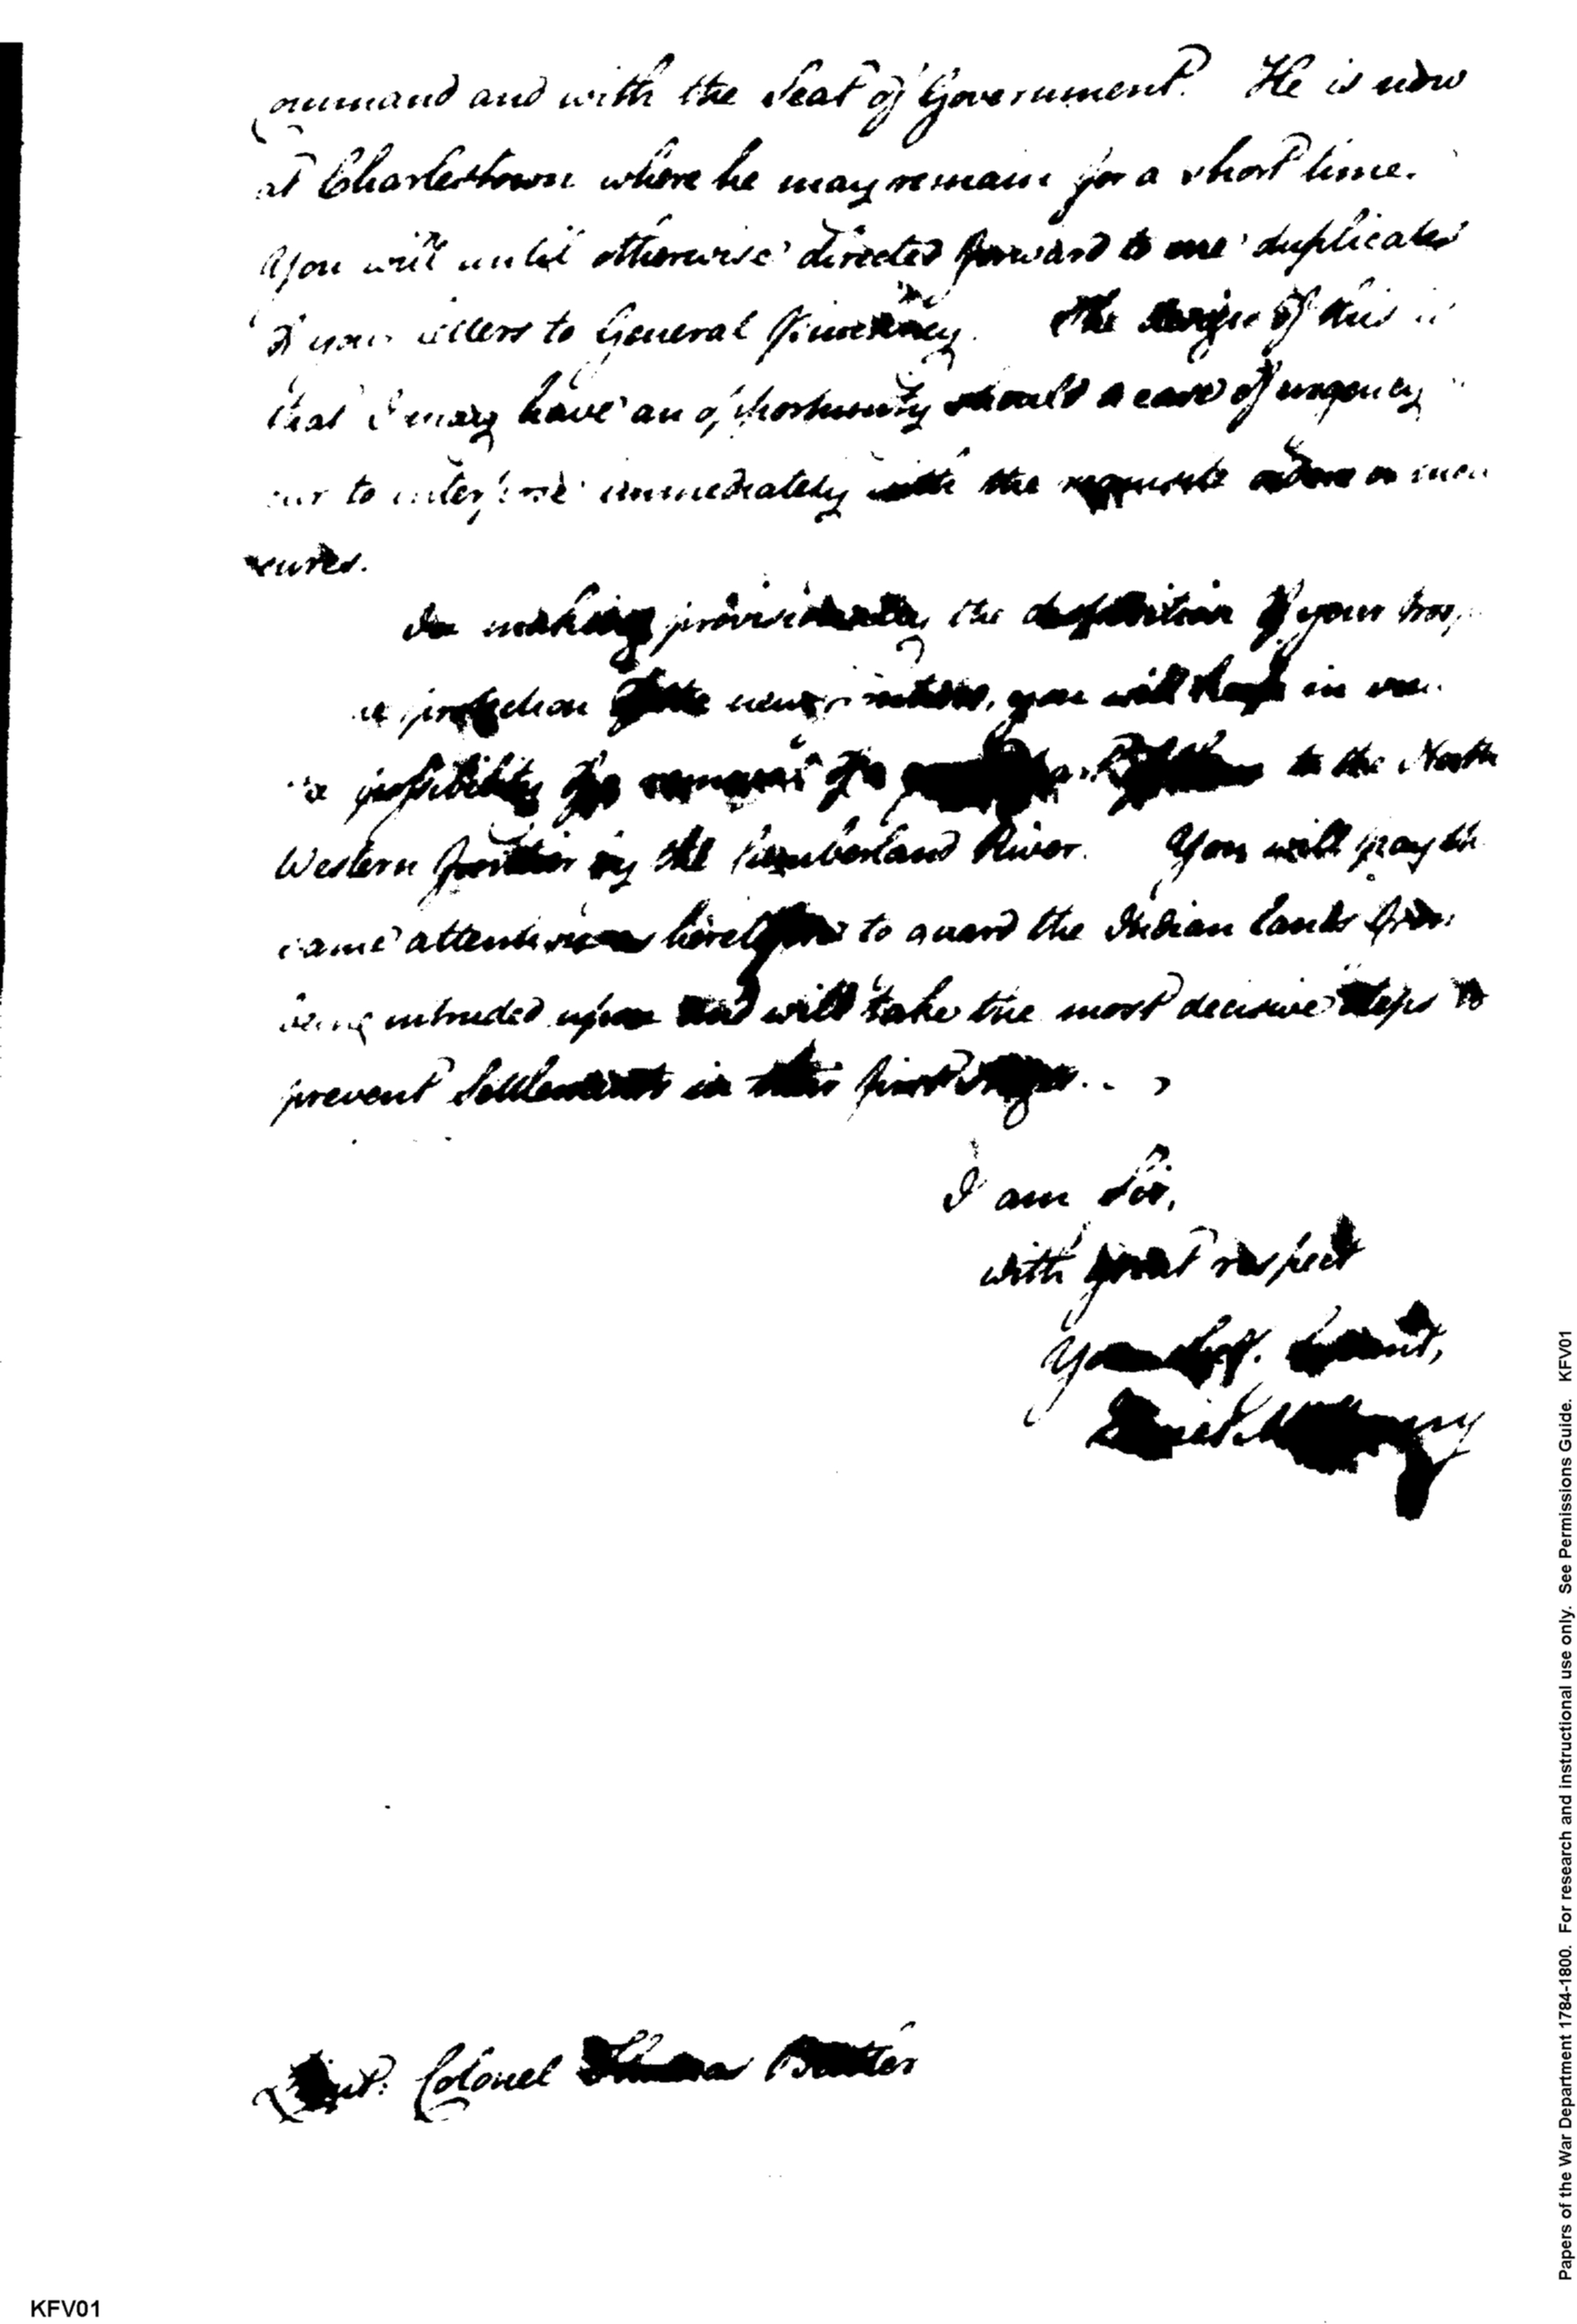 Command and with the Seat of Government. He is now
at Charlestown where he may remain for a short time.
You will until otherwise directed forward to me duplicates
of your letters to General Pinckney. The design of this is
that I may have an opportunity should a case of urgency
to interpose immediately with the requisite orders or mea
sures.
In making provisionally the disposition of your troops
protection you will keep in view
possibility of a removal of a part to the North
Western frontier by the Cumberland River. You will pay the
same attention heretofore to guard the Indian lands from
being intruded upon and will take the most decisive steps to
prevent Settlements in their first stages.
I am Sir,
with great respect
Your Obt. Servant,
James McHenry
Lieut: Colonel Thomas Butler
Papers of the War Department 1784-1800. For research and instructional use only. See Permissions Guide. KFV01
KFV01